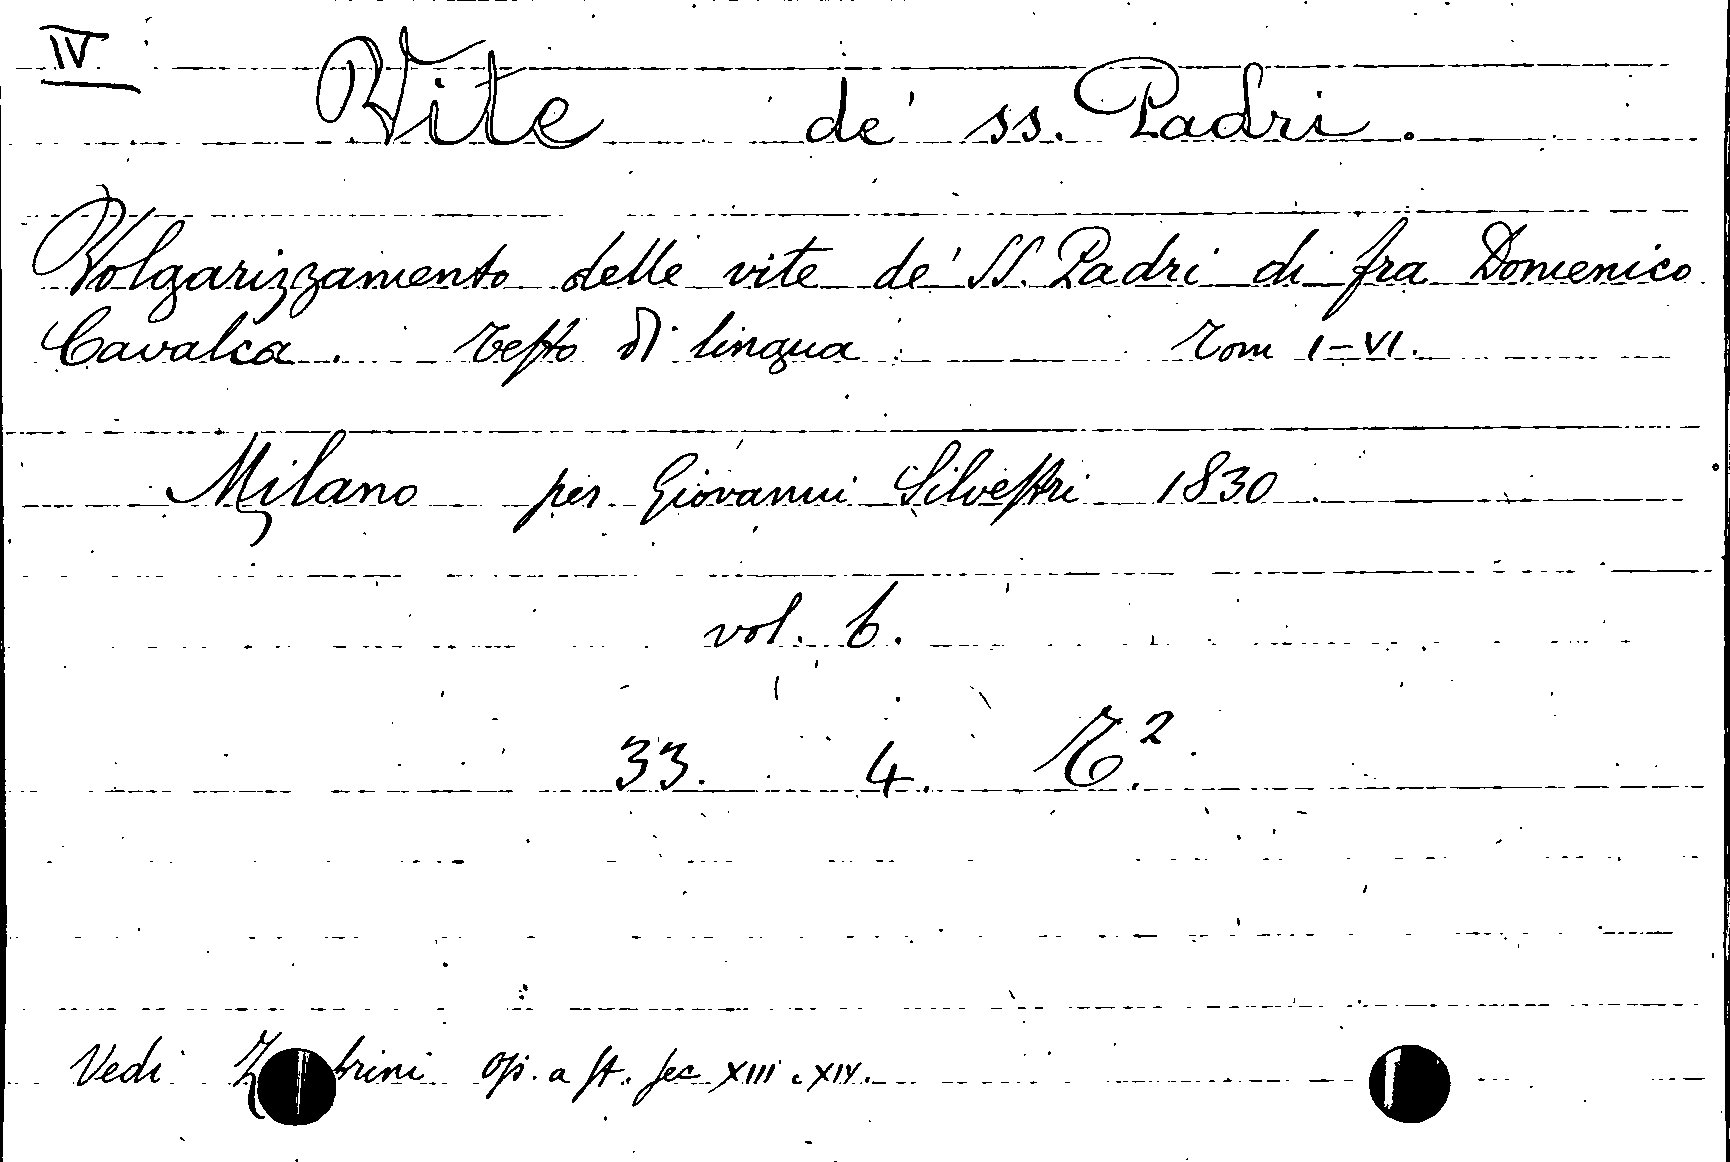 IV
Vite de' ss. Padri.
Volgarizzamento delle vite de' SS. Padri di fra Domenico
Cavalca. Testo di lingua Tom I-VI.
Milano per Giovanni Silvestri 1830
vol. 6.
33. 4. T².
Vedi op. a st. sec XIII e XIV.